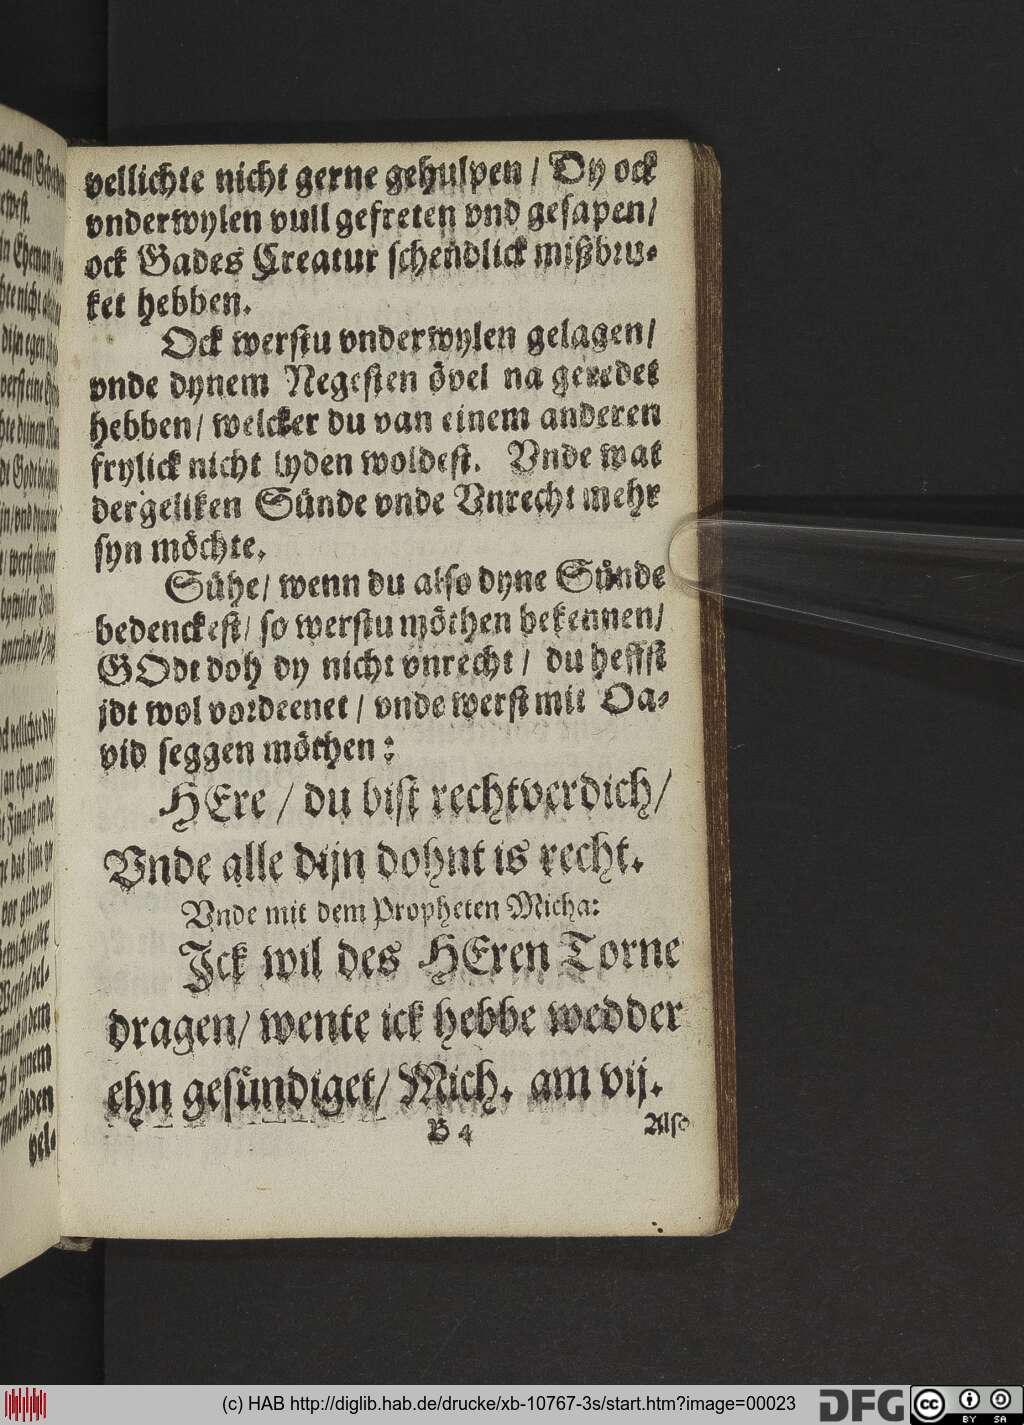 vellichte nicht gerne gehulpen / Dy ock
vnderwylen vull gefreten vnd gesapen/
ock Gades Creatur schendlick mißbru-
ket hebben.
Ock werstu vnderwylen gelagen/
vnde dynem Negesten övel na geredet
hebben/ welcker du van einem anderen
frylick nicht lyden woldest. Vnde wat
dergeliken Sünde vnde Vnrecht mehr
syn möchte.
Sühe/ wenn du also dyne Sünde
bedenckest/ so werstu möthen bekennen/
GOdt doh dy nicht vnrecht / du heffst
jdt wol vordeenet / vnde werst mit Da-
vid seggen möthen:
HEre / du bist rechtverdich/
Vnde alle dijn dohnt is recht.
Vnde mit dem Propheten Micha:
Jck wil des HEren Torne
dragen/ wente ick hebbe wedder
ehn gesündiget/ Mich. am vij.
B 4 Also
(c) HAB http://diglib.hab.de/drucke/xb-10767-3s/start.htm?image=00023 DFG cc BY SA